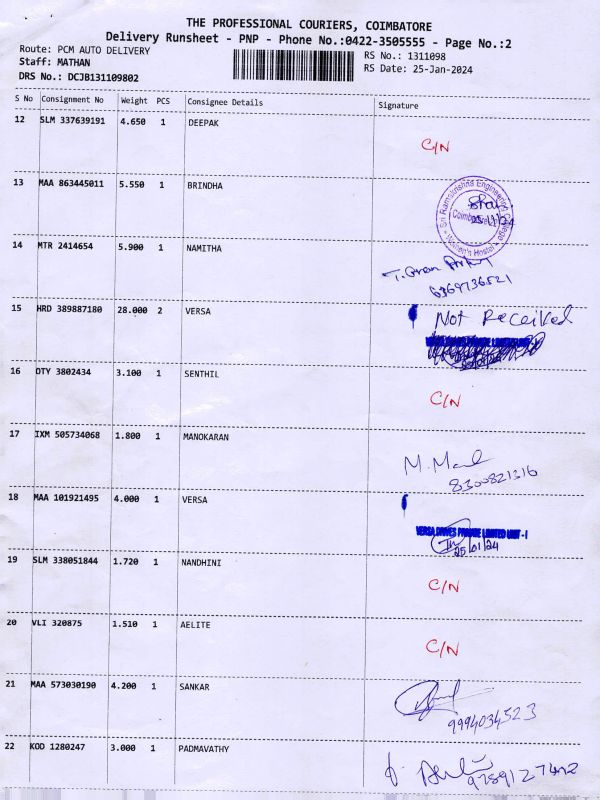 THE PROFESSIONAL COURIERS, COIMBATORE
Delivery Runsheet - PNP - Phone No.:0422-3505555 - Page No.:2
Route: PCM AUTO DELIVERY
RS No.: 1311098
Staff: MATHAN
RS Date: 25-Jan-2024
DRS No.: DCJB131109802
S No Consignment No Weight PCS Consignee Details Signature
12 SLM 337639191 4.650 1 DEEPAK
C/N
13 MAA 863445011 5.550 1 BRINDHA
Sri Ramakrishna Engineering College
Coimbatore
Women's Hostel
14 MTR 2414654 5.900 1 NAMITHA
6369736521
15 HRD 389887180 28.000 2 VERSA
Not Received
16 OTY 3802434 3.100 1 SENTHIL
C/N
17 IXM 505734068 1.800 1 MANOKARAN
8300821316
18 MAA 101921495 4.000 1 VERSA
VERSA DRIVES PRIVATE LIMITED UNIT - I
25/01/24
19 SLM 338051844 1.720 1 NANDHINI
C/N
20 VLI 320875 1.510 1 AELITE
C/N
21 MAA 573030190 4.200 1 SANKAR
9994034523
22 KOD 1280247 3.000 1 PADMAVATHY
9789127402